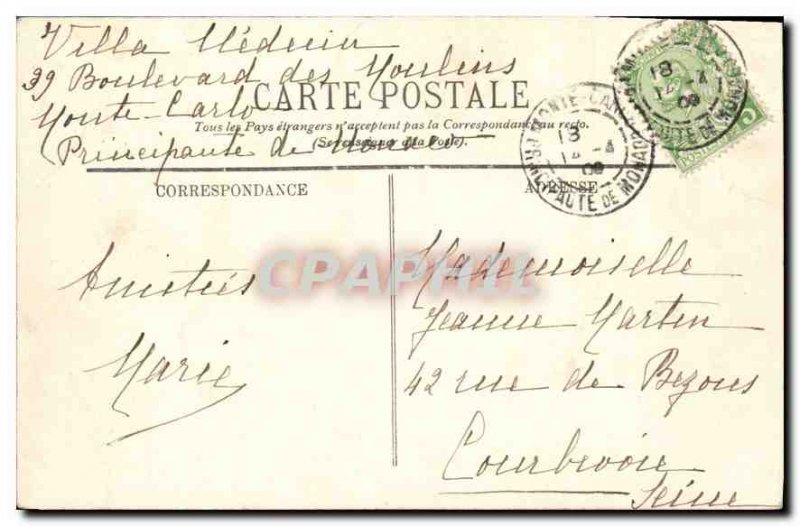 Villa Médecin
39 Boulevard des Moulins
Monte-Carlo
Principauté de Monaco
CARTE POSTALE
Tous les Pays étrangers n'acceptent pas la Correspondance au recto.
(Se renseigner à la Poste).
MONTE-CARLO
18
14 -4
09
PRINCIPAUTE DE MONACO
18
14 -4
09
PRINCIPAUTE DE MONACO
CORRESPONDANCE
ADRESSE
CPAPHIL
Amitiés
Marie
Mademoiselle
Jeanne Martin
42 rue de Bezons
Courbevoie
Seine